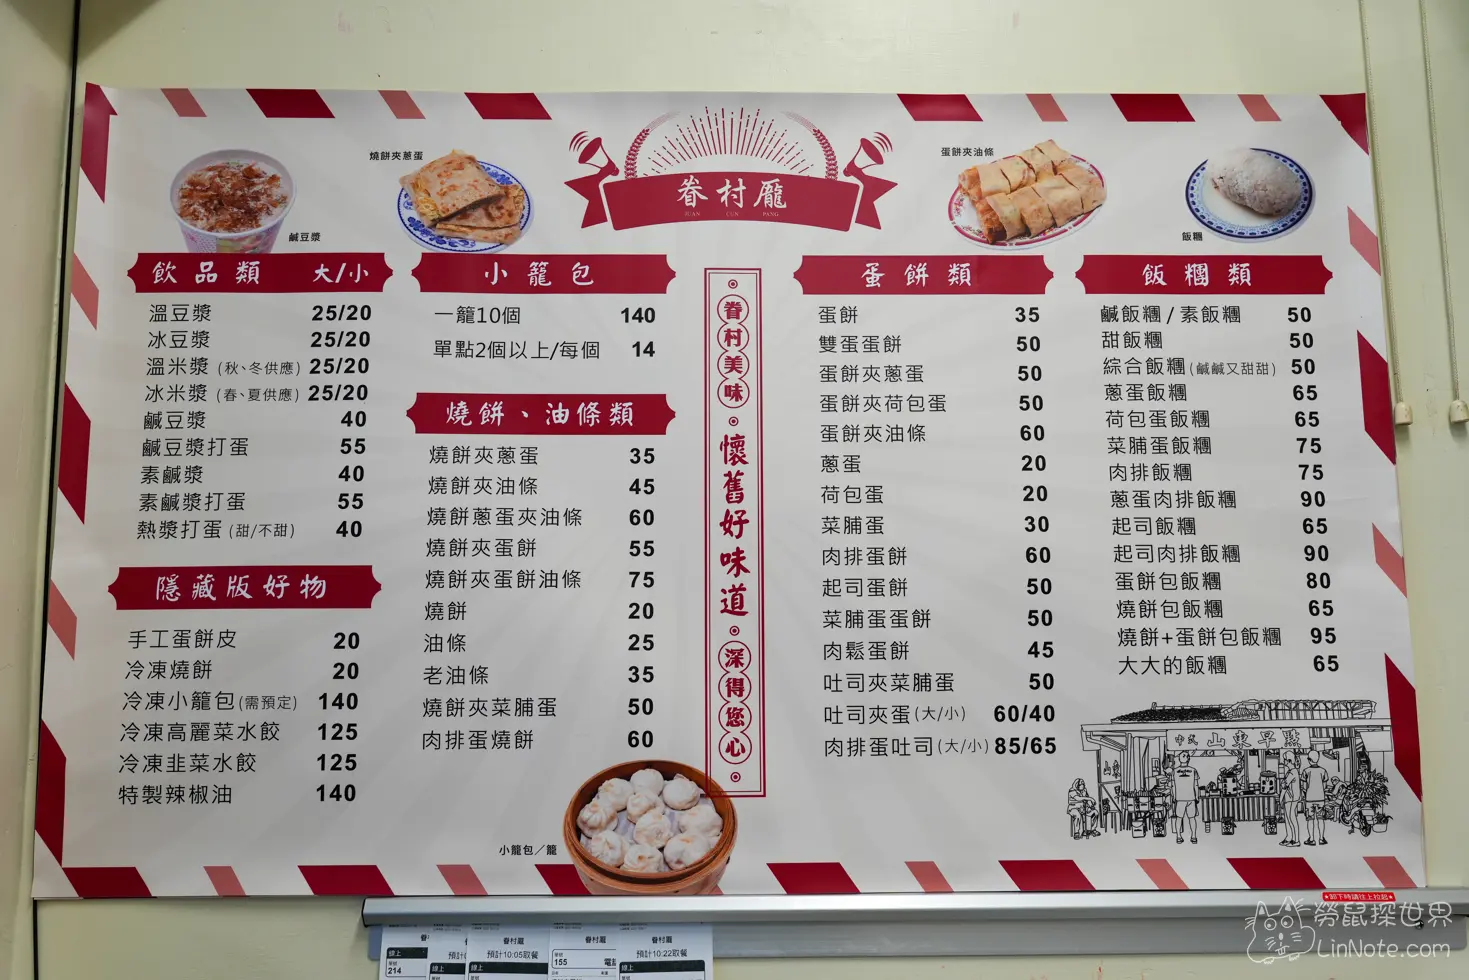 燒餅夾蔥蛋
鹹豆漿
眷村龎
JUAN CUN PANG
蛋餅夾油條
飯糰
飲品類 大/小
溫豆漿 25/20
冰豆漿 25/20
溫米漿(秋、冬供應) 25/20
冰米漿(春、夏供應) 25/20
鹹豆漿 40
鹹豆漿打蛋 55
素鹹漿 40
素鹹漿打蛋 55
熱漿打蛋(甜/不甜) 40
隱藏版好物
手工蛋餅皮 20
冷凍燒餅 20
冷凍小籠包(需預定) 140
冷凍高麗菜水餃 125
冷凍韭菜水餃 125
特製辣椒油 140
小籠包
一籠10個 140
單點2個以上/每個 14
燒餅、油條類
燒餅夾蔥蛋 35
燒餅夾油條 45
燒餅蔥蛋夾油條 60
燒餅夾蛋餅 55
燒餅夾蛋餅油條 75
燒餅 20
油條 25
老油條 35
燒餅夾菜脯蛋 50
肉排蛋燒餅 60
小籠包/籠
眷村美味·懷舊好味道·深得您心
蛋餅類
蛋餅 35
雙蛋蛋餅 50
蛋餅夾蔥蛋 50
蛋餅夾荷包蛋 50
蛋餅夾油條 60
蔥蛋 20
荷包蛋 20
菜脯蛋 30
肉排蛋餅 60
起司蛋餅 50
菜脯蛋蛋餅 50
肉鬆蛋餅 45
吐司夾菜脯蛋 50
吐司夾蛋(大/小) 60/40
肉排蛋吐司(大/小) 85/65
飯糰類
鹹飯糰/素飯糰 50
甜飯糰 50
綜合飯糰(鹹鹹又甜甜) 50
蔥蛋飯糰 65
荷包蛋飯糰 65
菜脯蛋飯糰 75
肉排飯糰 75
蔥蛋肉排飯糰 90
起司飯糰 65
起司肉排飯糰 90
蛋餅包飯糰 80
燒餅包飯糰 65
燒餅+蛋餅包飯糰 95
大大的飯糰 65
山東早點
山東
卸下時請往上拉起
眷村龎
眷村龎
眷村龎
預計10:05取餐
預計10:22取餐
線上
214
線上
線上
155
線上
勞鼠探世界
LinNote.com